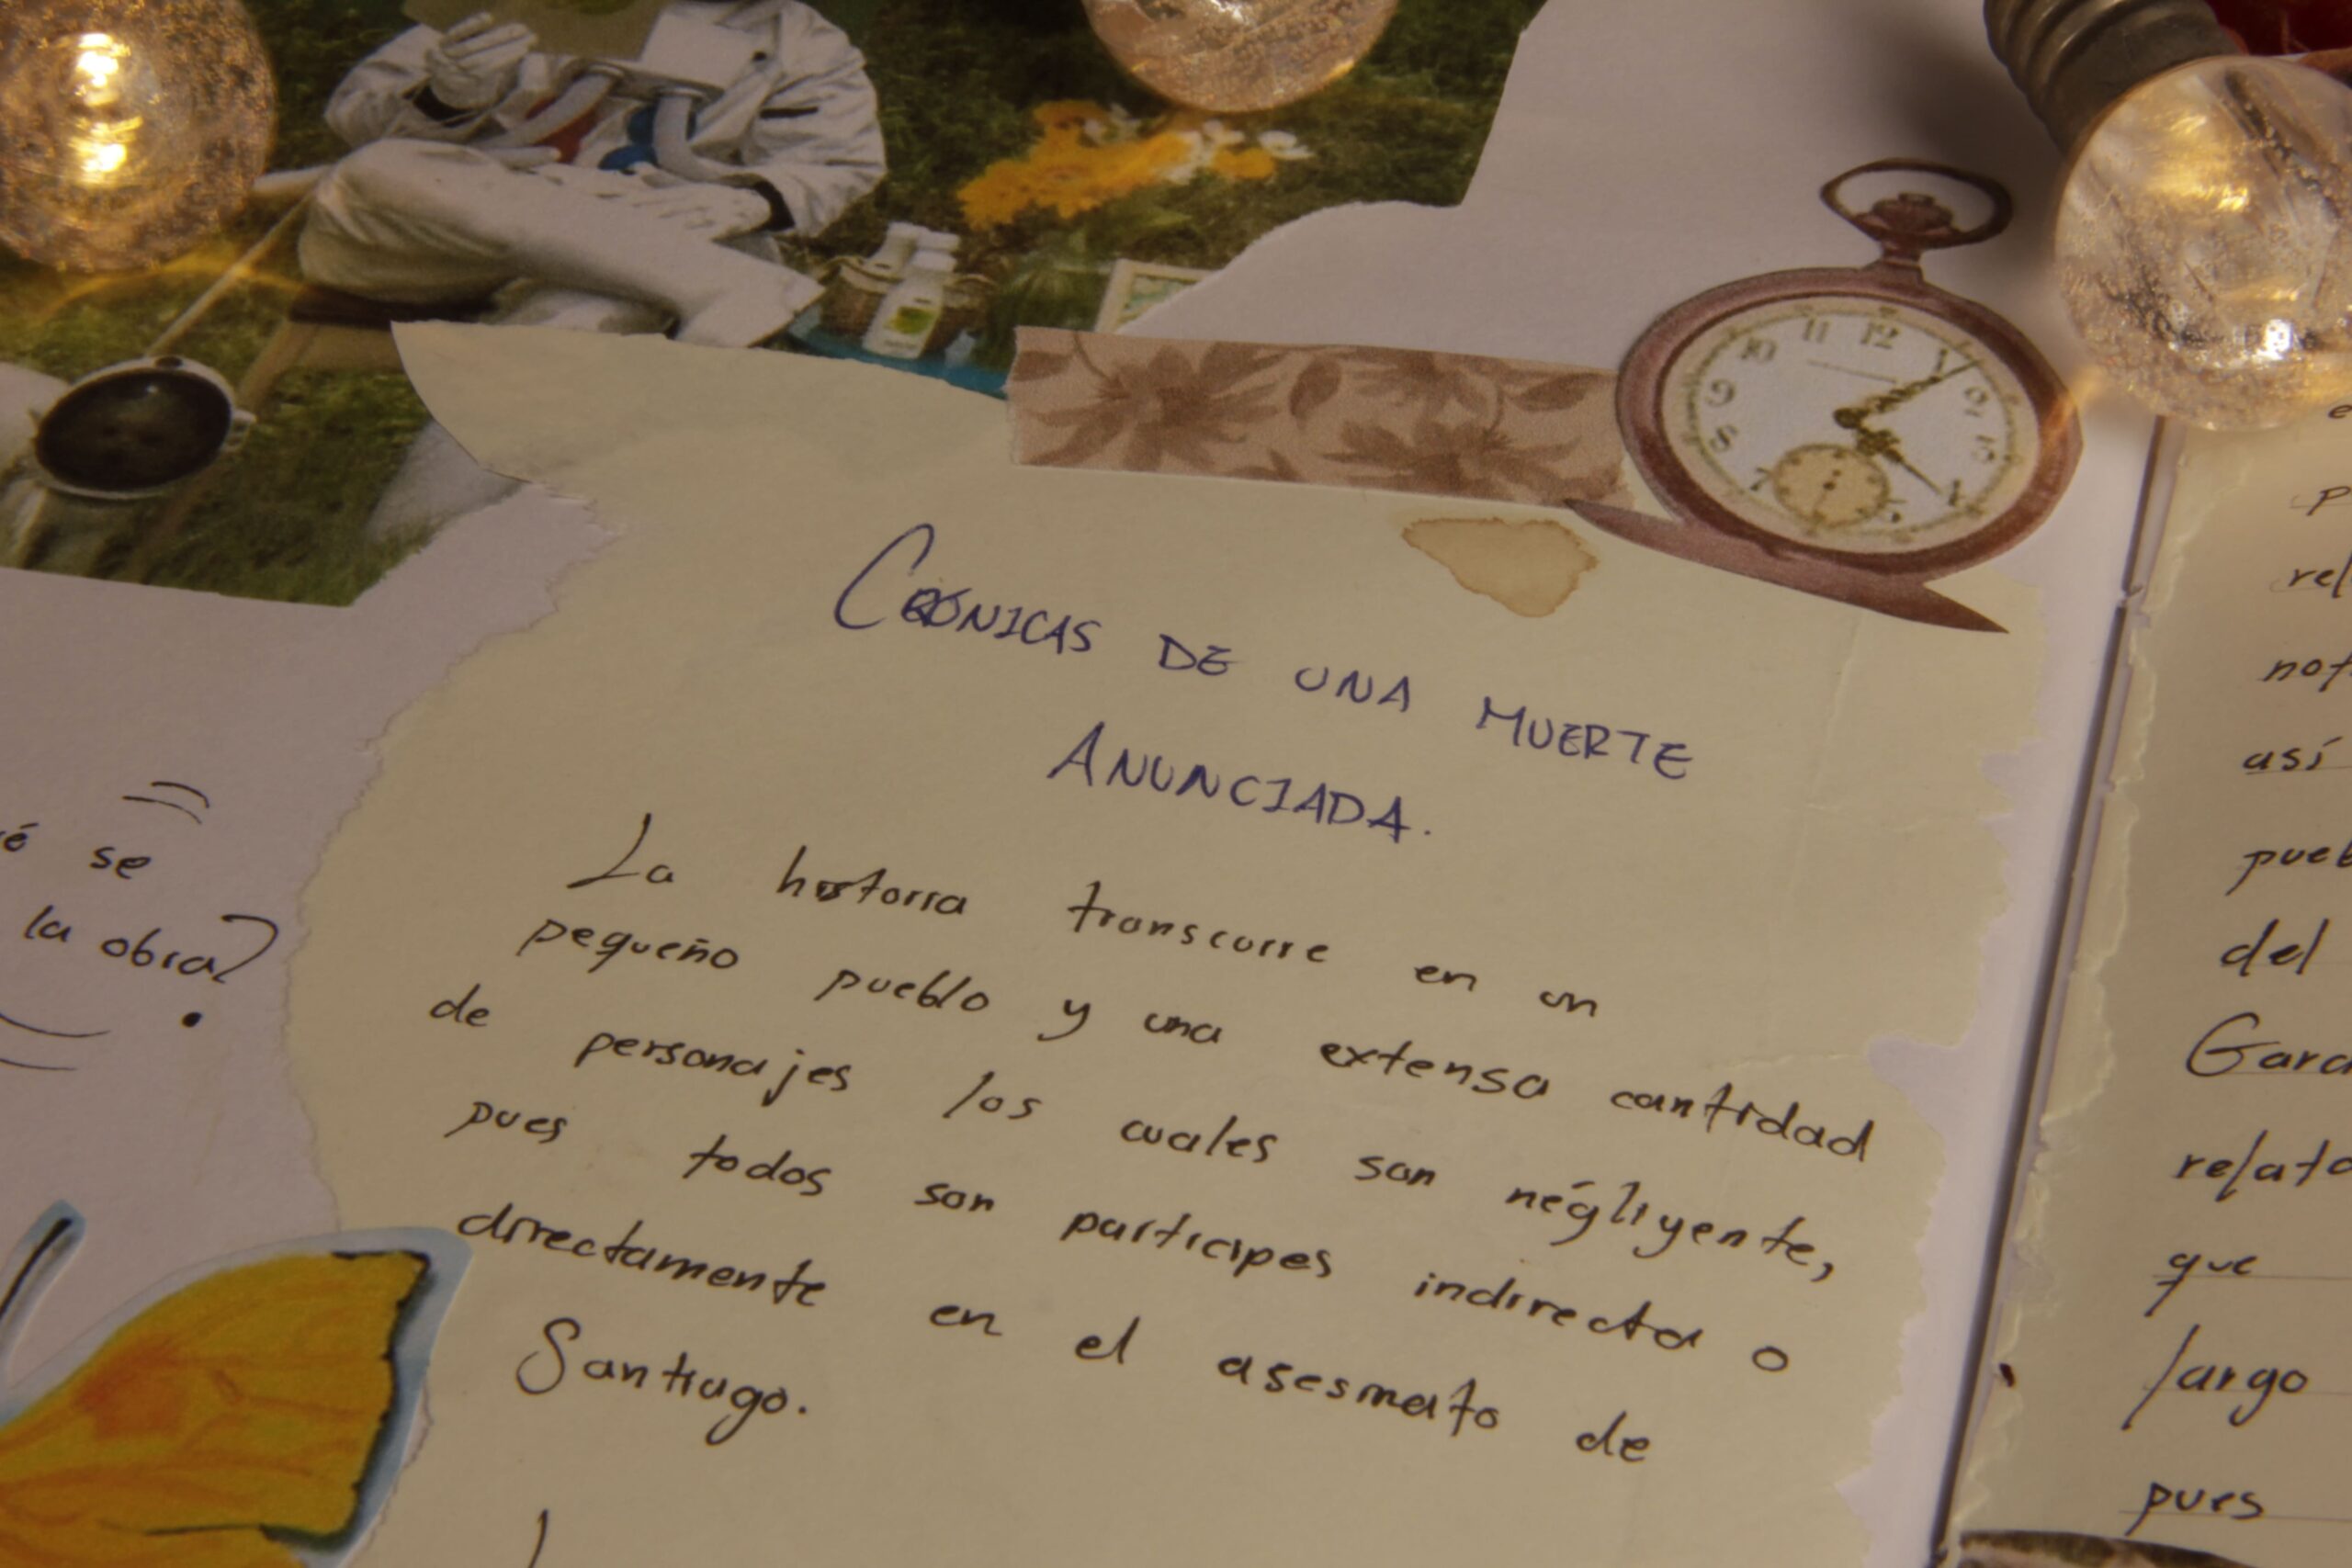 CRÓNICAS DE UNA MUERTE
ANUNCIADA.
La historia transcurre en un
pequeño pueblo y una extensa cantidad
de personajes los cuales son négligente,
pues todos son participes indirecta o
directamente en el asesinato de
Santiago.
se
la obra?
así
del
que
largo
pues
11 12
10
9
8
7